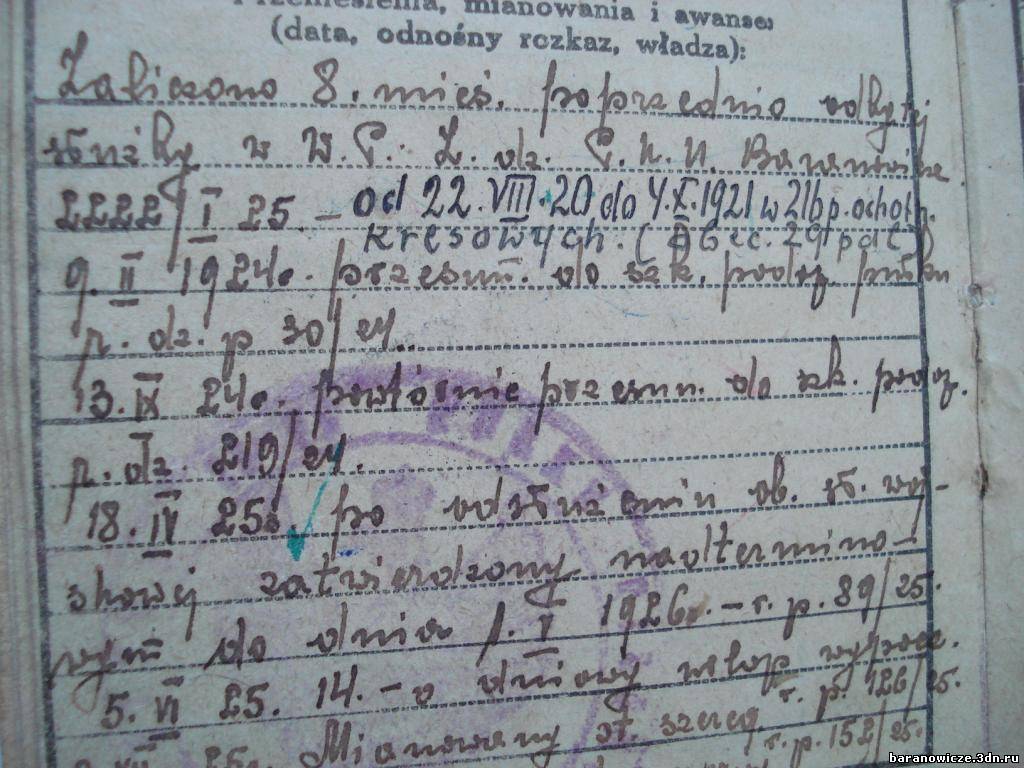 Przeniesienia, mianowania i awanse:
(data, odnośny rozkaz, władza):
Zaliczono 8. mieś. poprzednio odbytej
służby w W. P. L. dz. P. K. U. Baranowicze
2222/I 25 – od 22.VIII.20 do 4.X.1921 w 21b p. ochotn.
kresowych. (Obec. 29 pal)
9. II 1924r. przesun. do szk. podof. pułku
r. dz. p 30/24.
13. IX 24r. powtórnie przesun. do szk. podof.
r. dz. 219/24.
18. IV 25r. po odsłużeniu ob. sł. woj-
skowej zatwierdzony nadtermino-
wym do dnia 1. V 1926r. – r. p. 89/25.
5. VI 25. 14. – o dniowy urlop wypocz.
r. p. 126/25.
VII 25r. Mianowany st. szereg.
r. p. 152/25.
baranowicze.3dn.ru